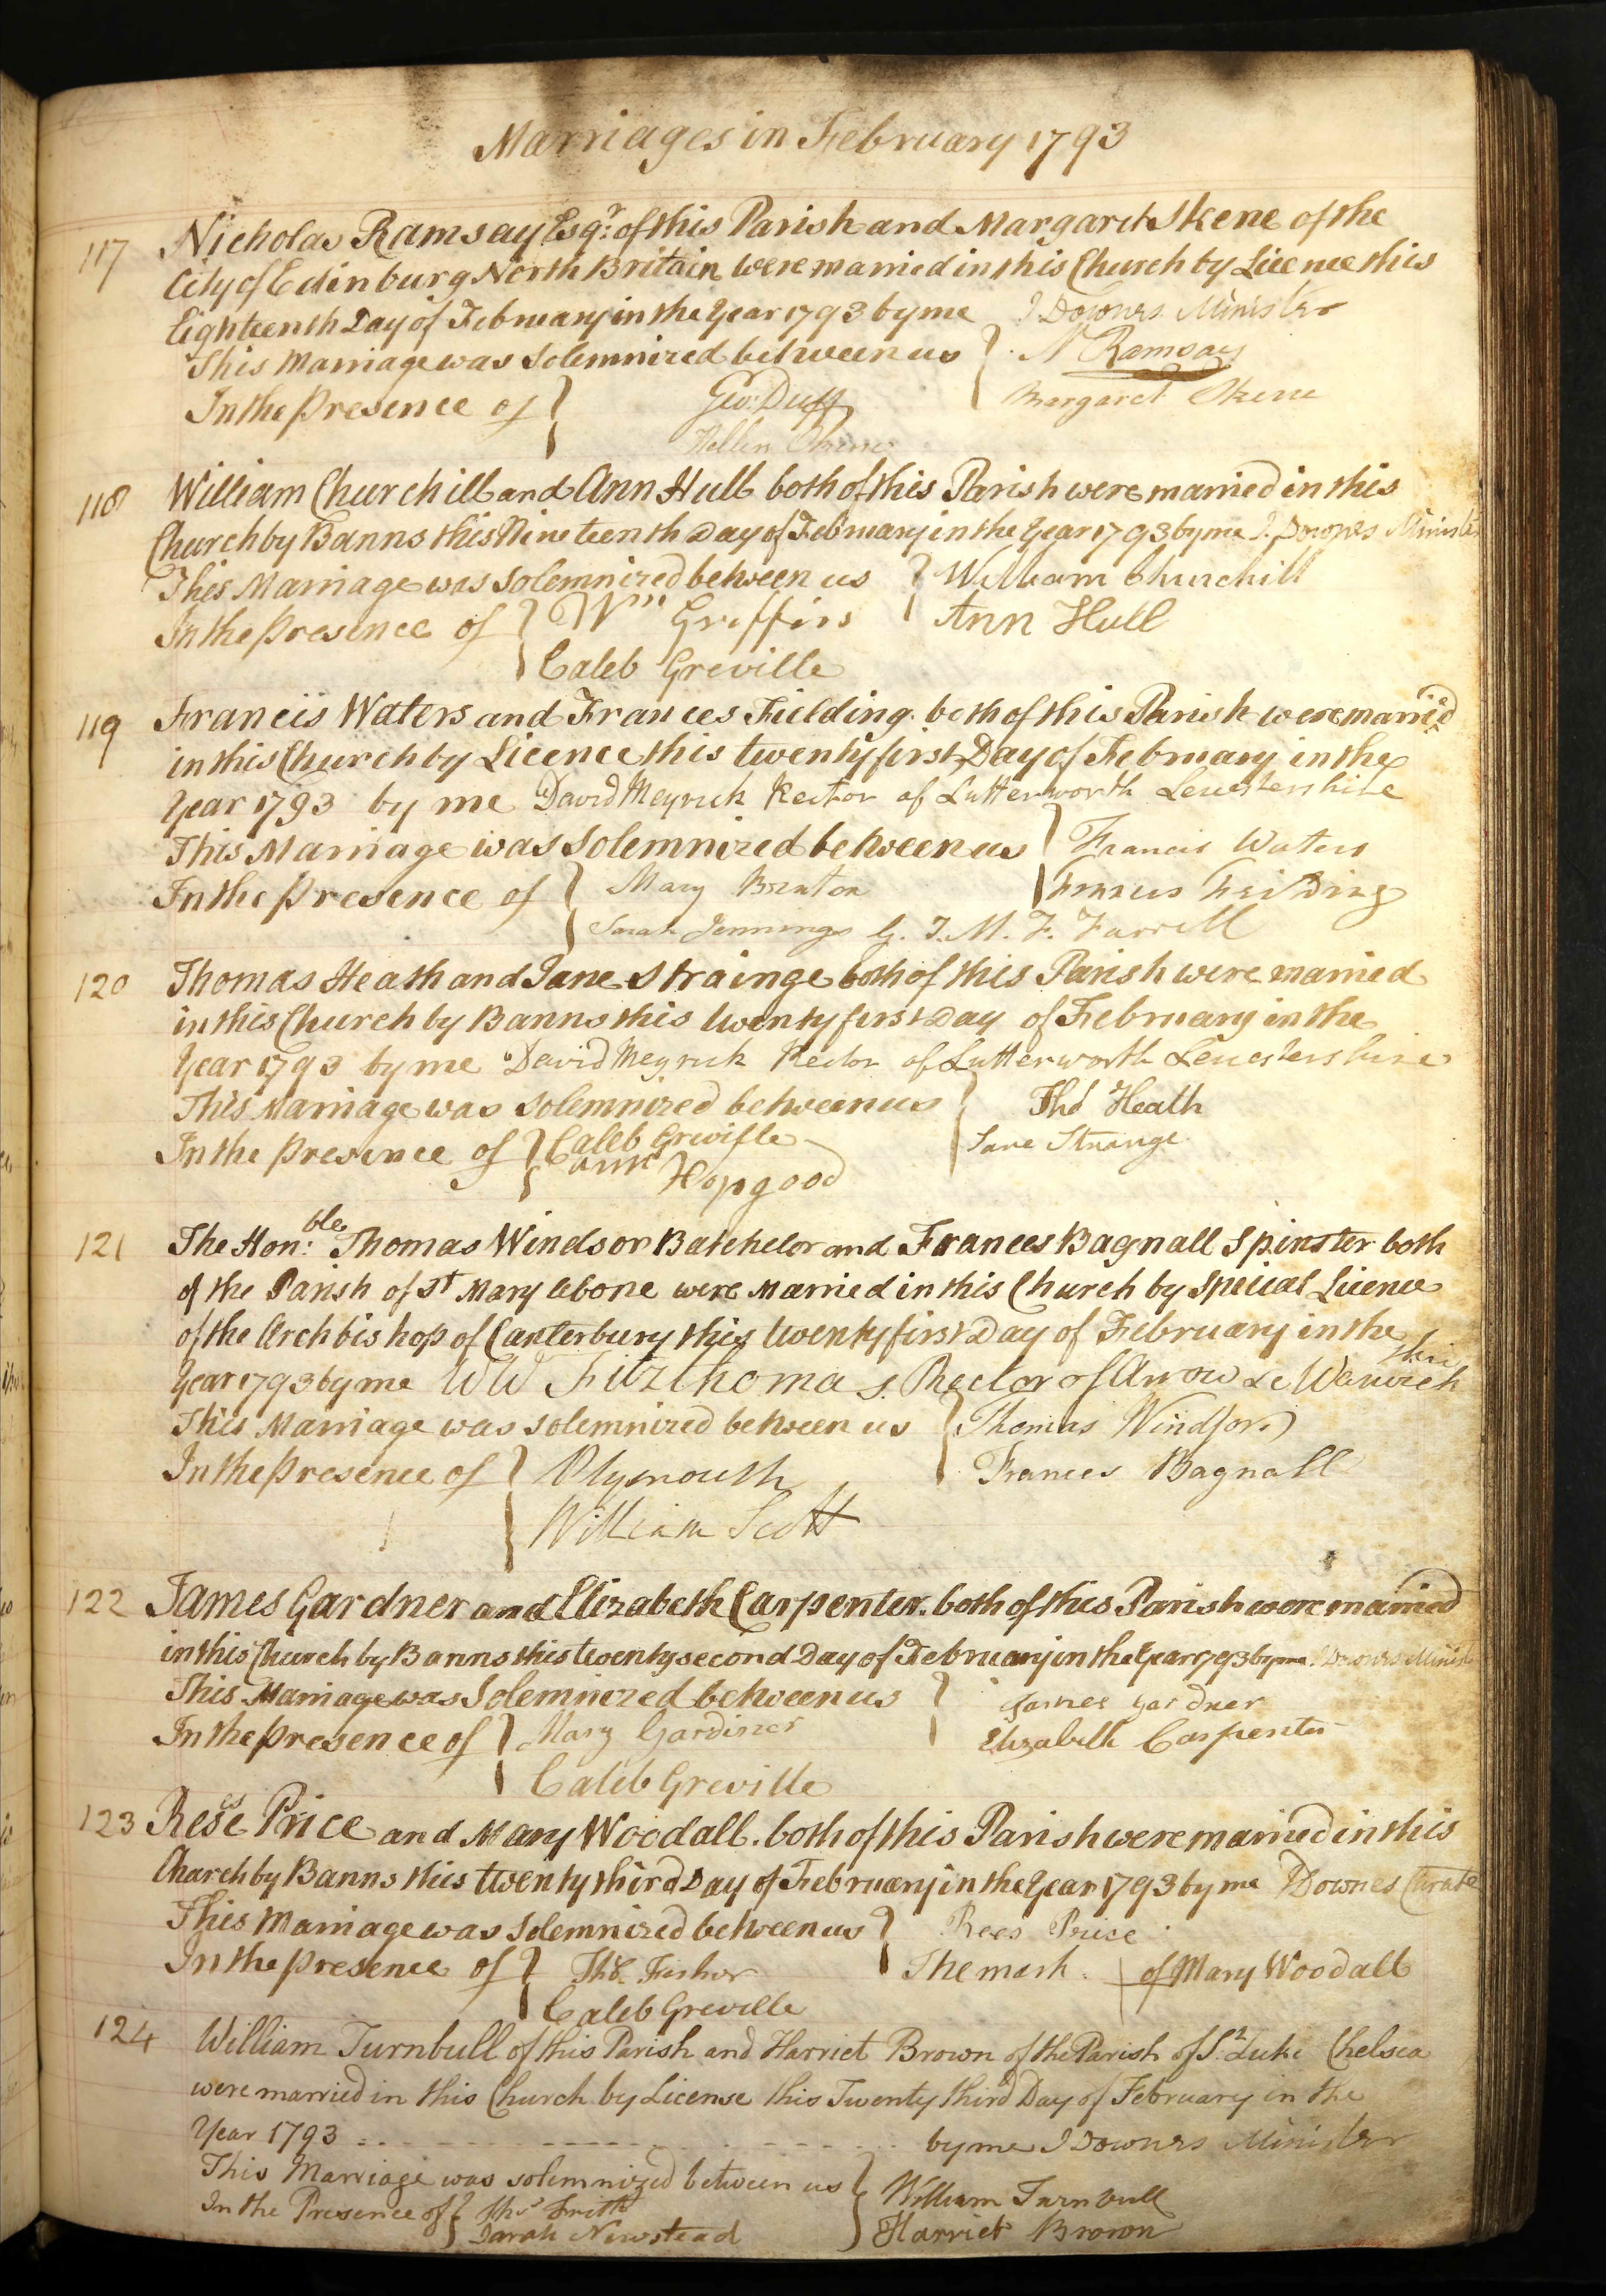 Marriages in February 1793
117 Nicholas Ramsay Esqr. of this Parish and Margaret Skene of the
City of Edinburg North Britain were married in this Church by Licence this
Eighteenth Day of February in the Year 1793 by me J Downes Minister
This Marriage was Solemnized between us } N Ramsay
In the Presence of } Geo: Duff Margaret Skene
Hellen
118 William Churchill and Ann Hull both of this Parish were married in this
Church by Banns this Nineteenth Day of February in the Year 1793 by me J. Downes Minister
This Marriage was Solemnized between us } William Churchill
In the presence of } Wm Griffin Ann Hull
Caleb Greville
119 Francis Waters and Frances Fielding both of this Parish were married
in this Church by Licence this twenty first Day of February in the
Year 1793 by me David Meyrick Rector of Lutterworth Leicestershire
This Marriage was Solemnized between us } Francis Waters
In the presence of } Mary Brunton Frances Feilding
Sarah Jennings G. J. M. F. Farrell
120 Thomas Heath and Jane Strainge both of this Parish were married
in this Church by Banns this twenty first Day of February in the
Year 1793 by me David Meyrick Rector of Lutterworth Leicestershire
This Marriage was Solemnized between us } Thos Heath
In the presence of } Caleb Greville Jane Strange
ann Hopgood
121 The Hon:ble Thomas Windsor Batchelor and Frances Bagnall Spinster both
of the Parish of St Mary lebone were Married in this Church by Special Licence
of the Archbishop of Canterbury this twenty first Day of February in the
Year 1793 by me WW Fitzthomas. Rector of Arrow &c Warwickshire
This Marriage was Solemnized between us } Thomas Windsor
In the presence of } Plymouth Frances Bagnall
William Scott
122 James Gardner and Elizabeth Carpenter both of this Parish were married
in this Church by Banns this twenty second Day of February in the Year 1793 by me J Downes Minister
This Marriage was Solemnized between us } James Gardner
In the presence of } Mary Gardiner Elizabeth Carpenter
Caleb Greville
123 Rees Price and Mary Woodall. both of this Parish were married in this
Church by Banns this twenty third Day of February in the Year 1793 by me J Downes Curate
This Marriage was Solemnized between us } Rees Price
In the presence of } Thos. Fisher The mark + of Mary Woodall
Caleb Greville
124 William Turnbull of this Parish and Harriet Brown of the Parish of St. Luke Chelsea
were married in this Church by License this Twenty third Day of February in the
Year 1793 by me J Downes Minister
This Marriage was solemnized between us } William Turnbull
In the Presence of } Thos Frith Harriet Brown
Sarah Newstead